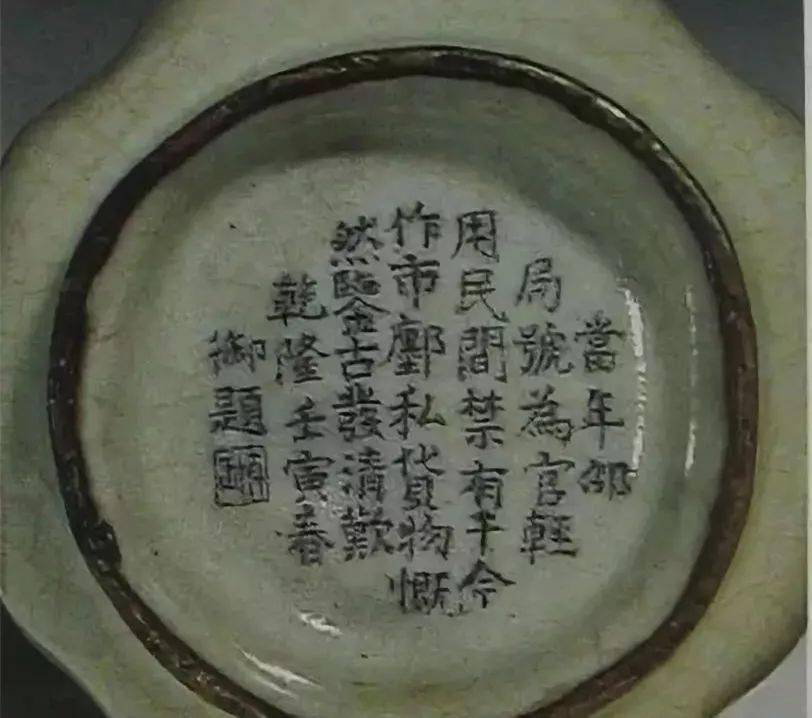 當年邵
局號為官輕
用民間禁有干今
作市鄽私貨物慨
然鑒古發清歎
乾隆壬寅春
御題